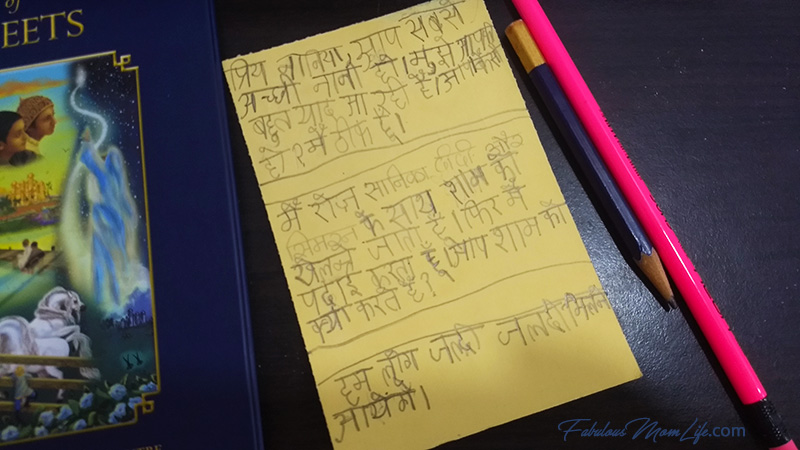 of
EETS
प्रिय सोनिया, आप सबसे
अच्छी नानी हो। मुझे आपकी
बहुत याद आ रही है। आप कैसी
हो? मैं ठीक हूँ।
मैं रोज़ सात्विका दीदी और
सिमरन के साथ शाम को
खेलने जाता हूँ। फिर मैं
पढ़ाई करता हूँ। आप शाम को
क्या करते है?
हम लोग जल्दी जल्दी मिलने
आयेंगे।
FabulousMomLife.com